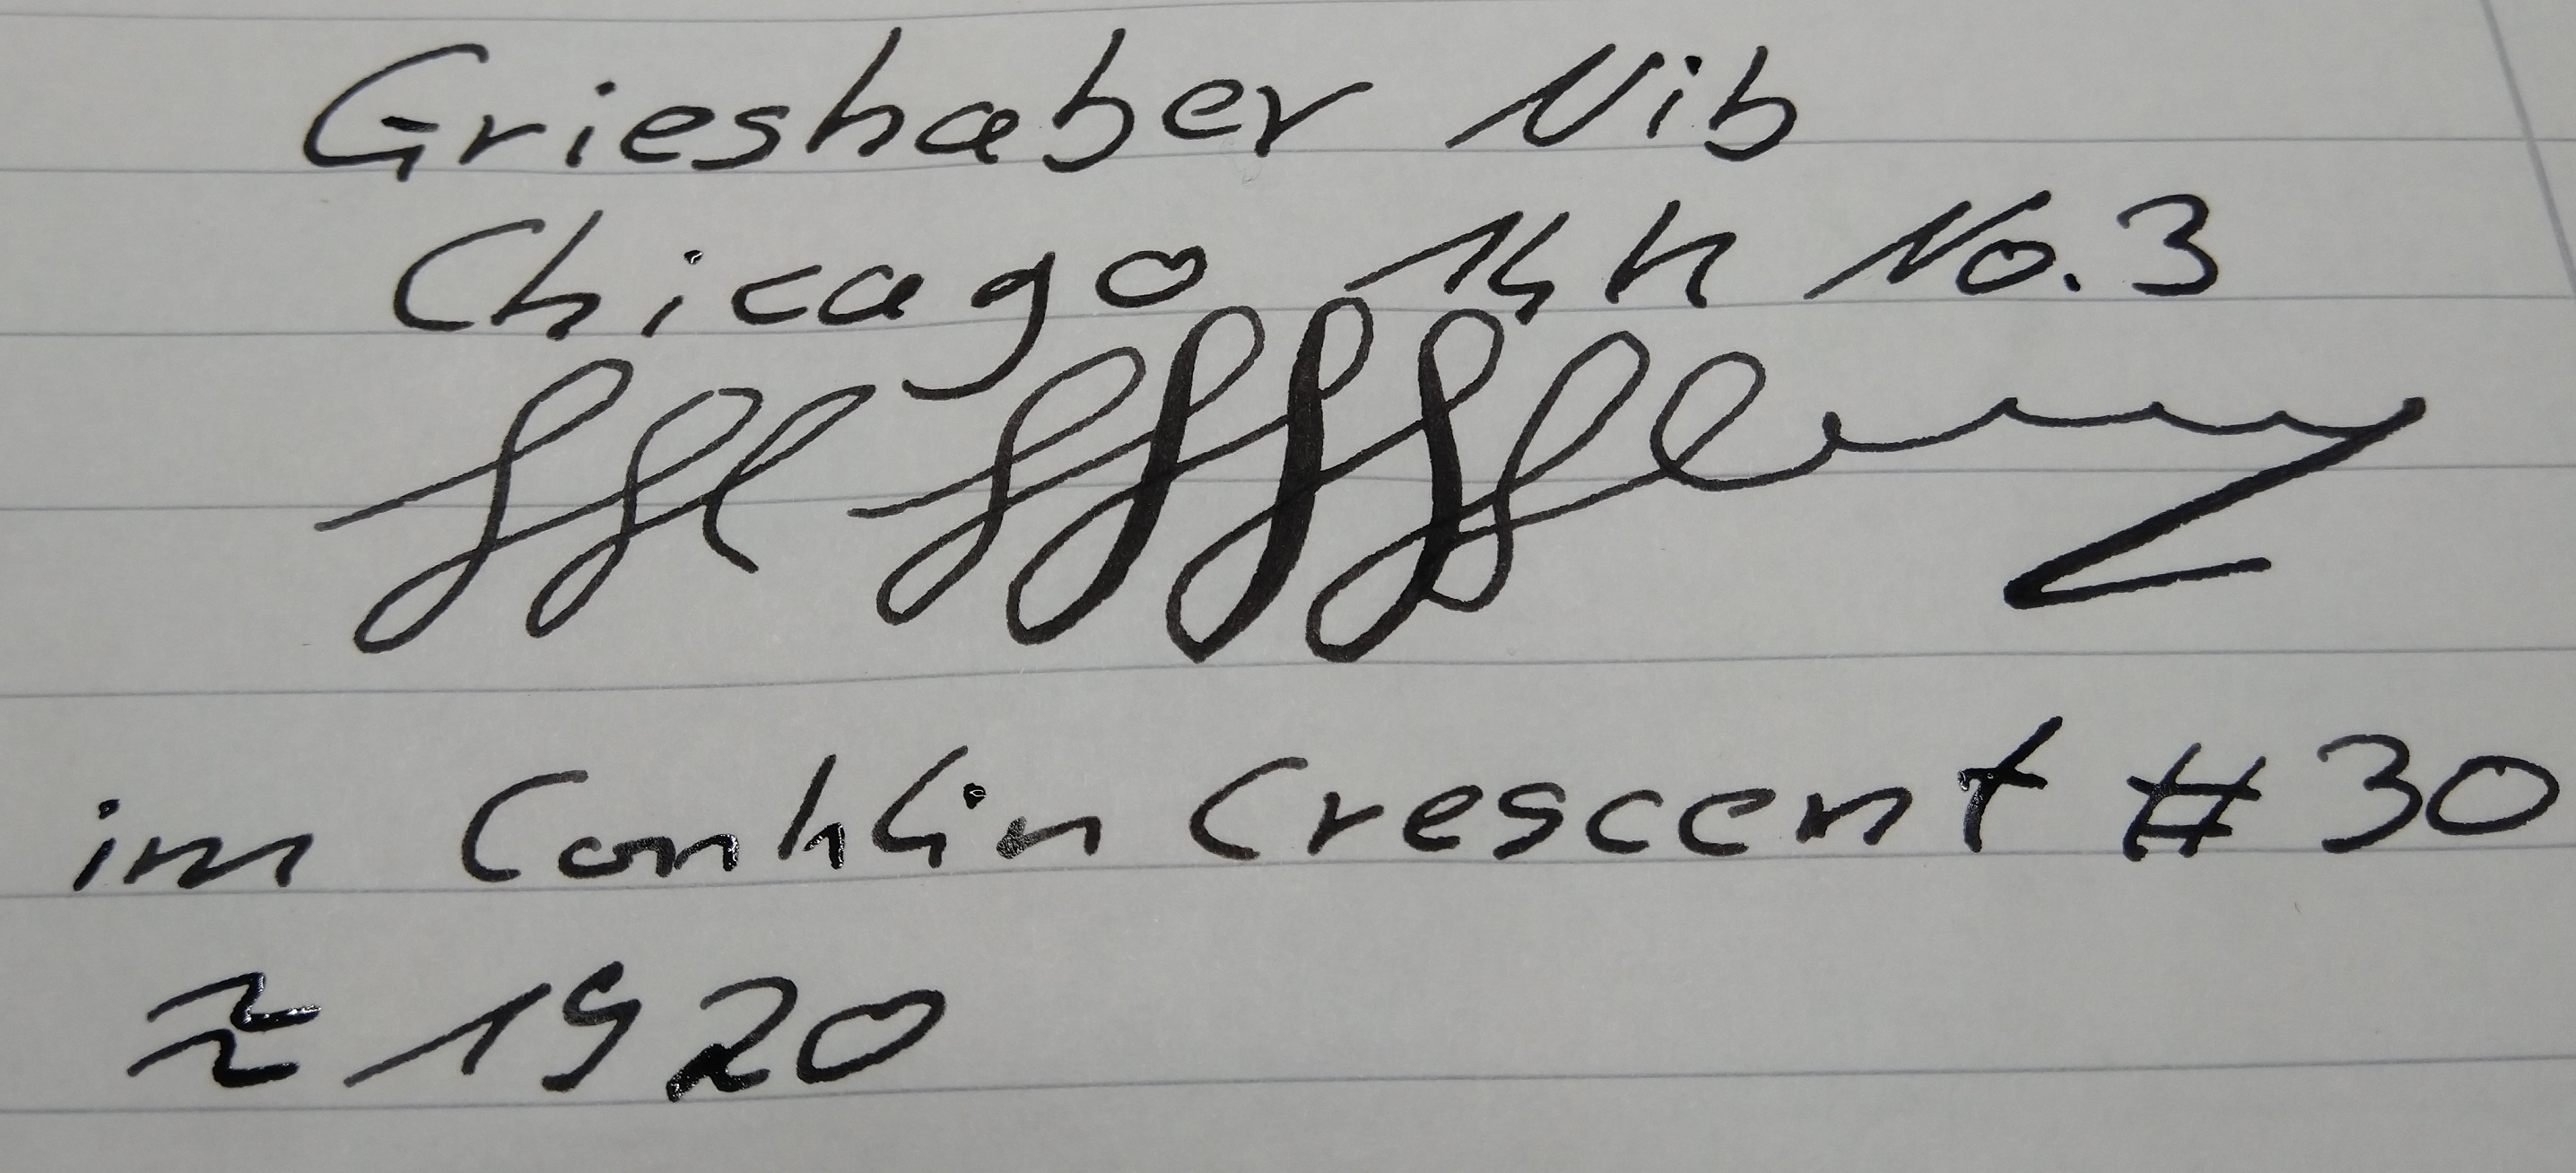 Grieshaber Nib
Chicago 14k No. 3
im Conklin Crescent # 30
≈ 1920